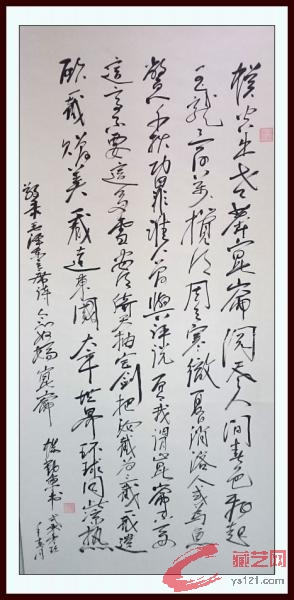 横空出世莽崑崙阅尽人间春色飞起
玉龍三百万搅得周天寒徹夏日消溶人或為鱼
鳖千秋功罪谁人曾與评说而今我谓崑崙不要
這高不要這多雪安得倚天抽宝剑把汝截为三截一截遗
欧一截赠美一截還東國太平世界环球同此凉热
毛泽东主席诗念奴娇崑崙
藏艺网
ys121.com